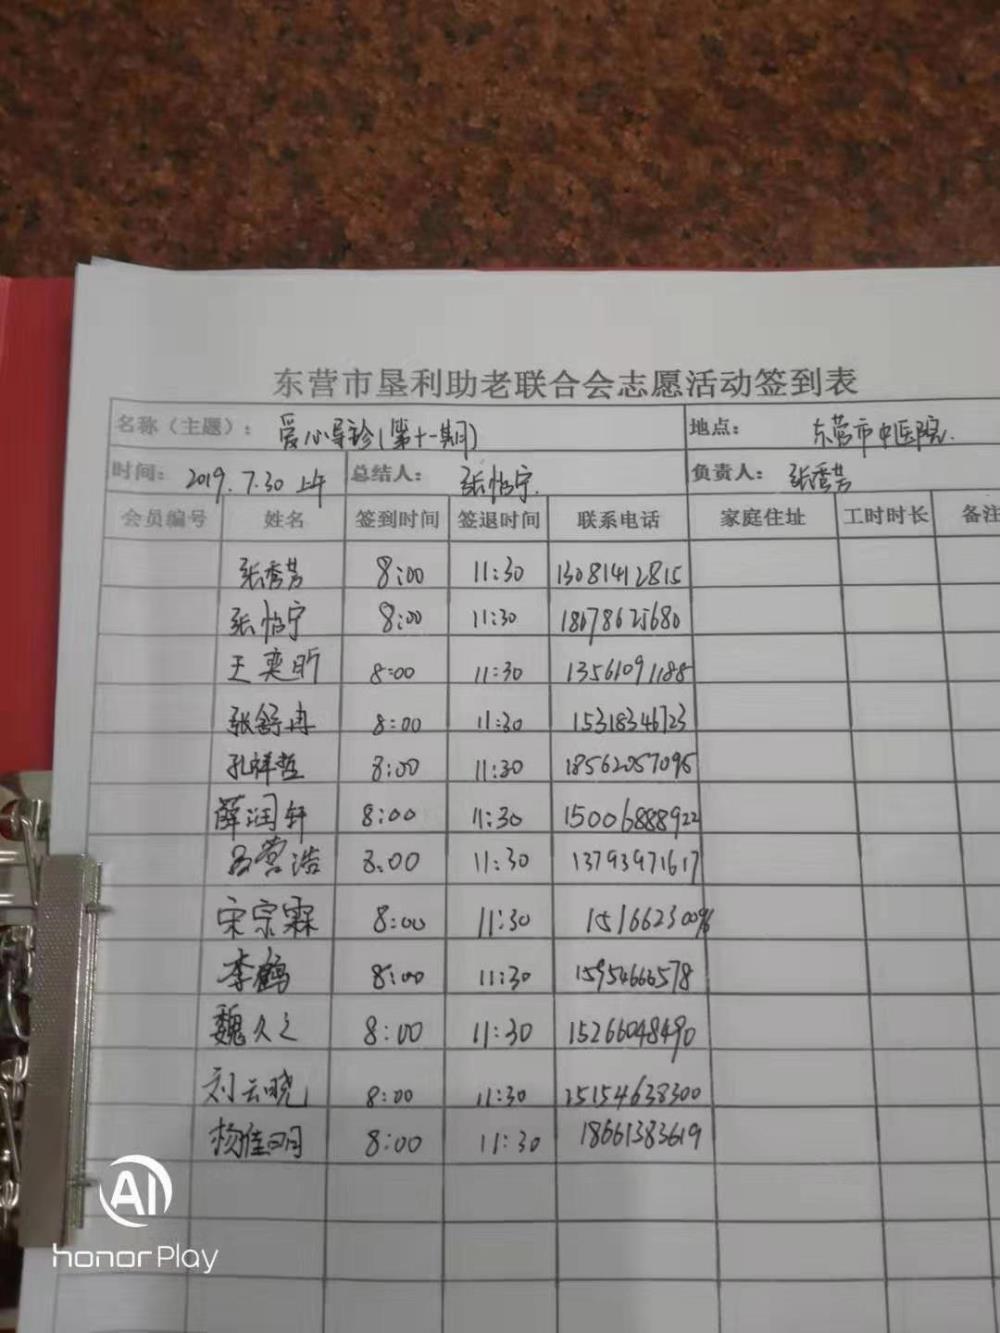 东营市垦利助老联合会志愿活动签到表
名称（主题）： 爱心导诊(第十一期) 地点： 东营市中医院.
时间： 2019.7.30 上午 总结人： 张怡宁. 负责人： 张秀芳
会员编号 姓名 签到时间 签退时间 联系电话 家庭住址 工时时长 备注
张秀芳 8:00 11:30 13081412815
张怡宁 8:00 11:30 18678625680
王奕昕 8:00 11:30 13561091188
张舒冉 8:00 11:30 15318346723
孔祥哲 8:00 11:30 18562057095
薛润轩 8:00 11:30 15006888922
吕营浩 8:00 11:30 13793971617
宋宗霖 8:00 11:30
李鹤 8:00 11:30 15954666578
魏久之 8:00 11:30 15266048490
刘云晓 8:00 11:30 15154638300
杨佳明 8:00 11:30 18661383619
AI
honor Play